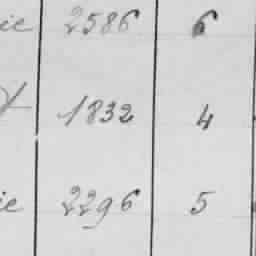 ie 2586 6
1832 4
ie 2296 5